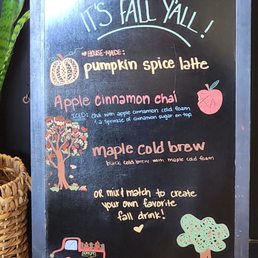 IT'S FALL Y'ALL!
*HOUSE-MADE:
pumpkin spice latte
Apple cinnamon chai
ICED: chai with apple cinnamon cold foam
& a sprinkle of cinnamon sugar on top
maple cold brew
black cold brew with maple cold foam
OR mix & match to create
your own favorite
fall drink!